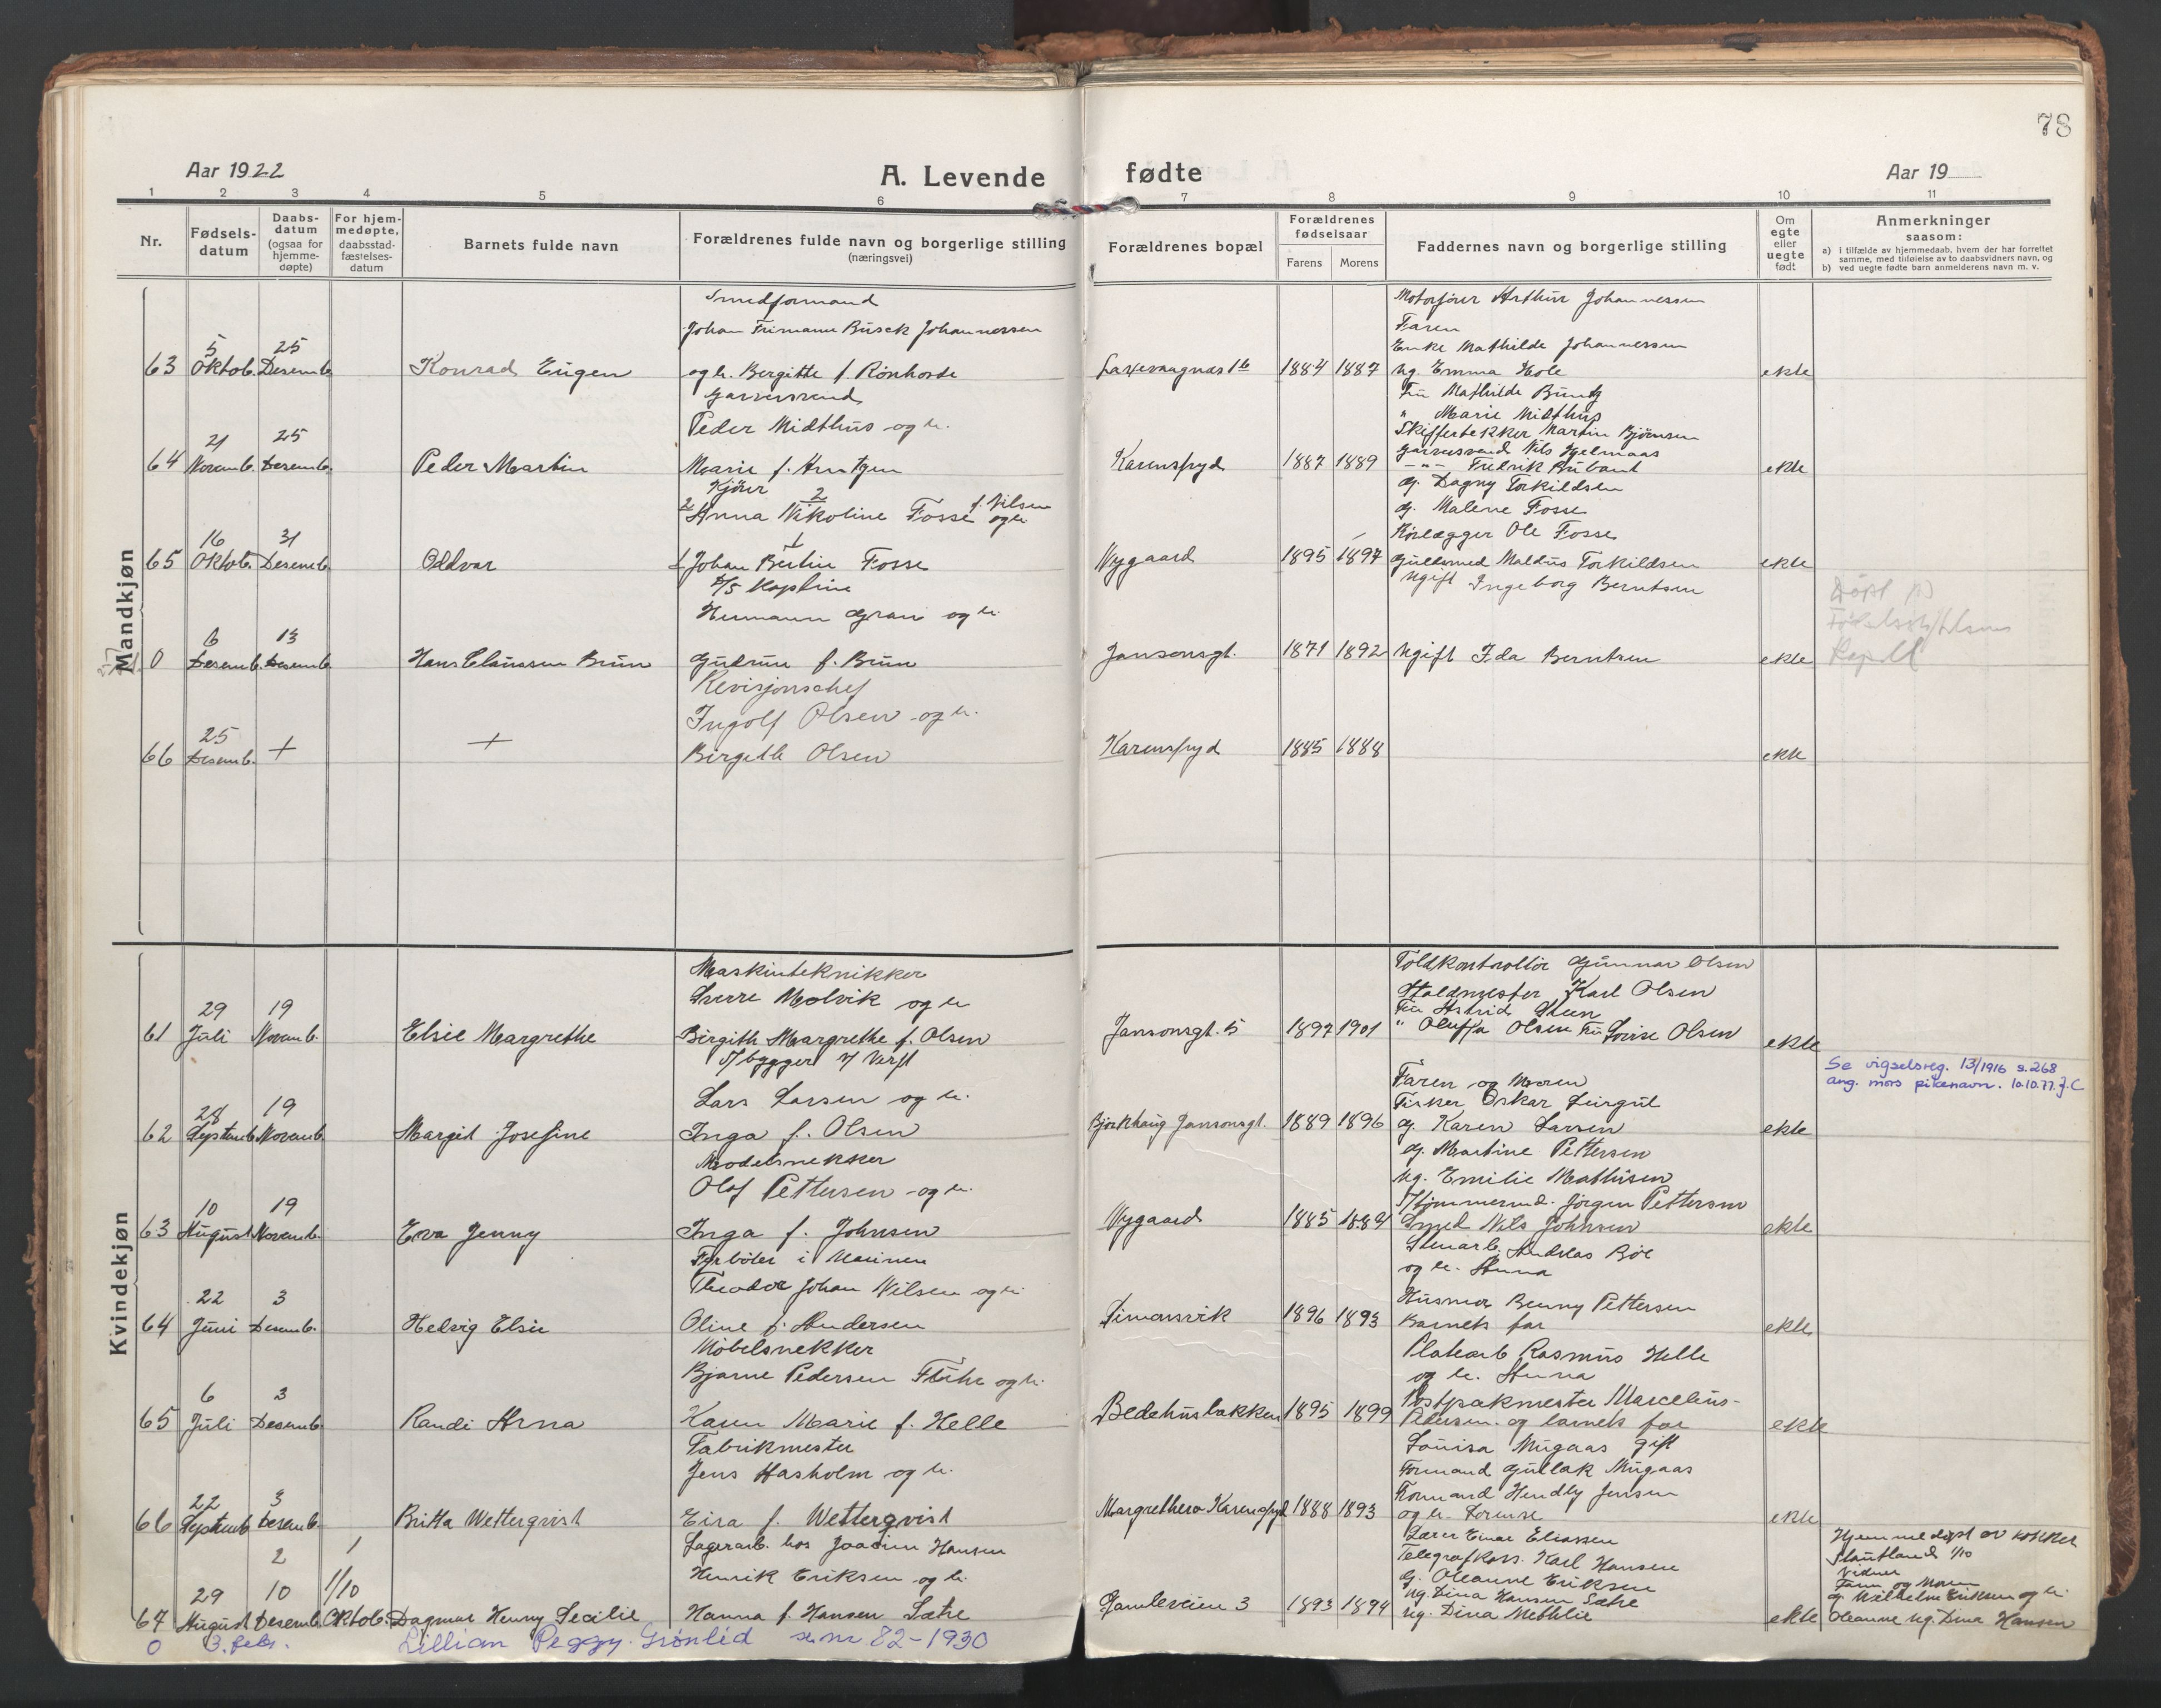 78
Aar 1922
A. Levende
fødte
Aar 19
1 2 3 4 5 6 7 8 9 10 11
Nr.
Fødsels-
datum
Daabs-
datum
(ogsaa for
hjemme-
døpte)
For hjem-
medøpte,
daabsstad-
fæstelses-
datum
Barnets fulde navn
Forældrenes fulde navn og borgerlige stilling
(næringsvei)
Forældrenes bopæl
Forældrenes
fødselsaar
Farens Morens
Faddernes navn og borgerlige stilling
Om
egte
eller
uegte
født
Anmerkninger
saasom:
a) i tilfælde av hjemmedaab, hvem der har forrettet
samme, med tilføielse av to daabsvidners navn, og
b) ved uegte fødte barn anmelderens navn m. v.
Mandkjøn
Smedformand
Johan Frimann Busck Johannessen
63 5 Oktob. 25 Desemb. Konrad Eugen
og h. Bergitte f. Rönhovde
Laxevaagnes 1b 1884 1887
Motorfører Arthur Johannessen
Faren
Enke Mathilde Johannessen
ug. Emma Hole
ekte
Garversvend
Peder Midthus og h.
64 21 Novemb. 25 Desemb. Peder Martin
Marie f. Arntzen
Karensfryd 1887 1889
Fru Mathilde Buntz
" Marie Midthus
Skiffertekker Martin Bjørnsen
Garversvend Nils Hjelmaas
-"- Fredrik Bribant
ekte
Kjører
2 Anna Nikoline Fosse f. Nilsen og h.
65 16 Oktob. 31 Desemb. Oddvar
1 Johan Bertin Fosse
Nygaard 1895 1897
g. Dagny Torkildsen
g. Malene Fosse
Rørlægger Ole Fosse
Gullsmed Maldus Torkildsen
ugift Ingeborg Berntsen
ekte
D/S Kaptein
Hermann Gran og h.
0 6 Desemb. 13 Desemb. Hans Claussen Bruun
Gudrun f. Bruun
Jansonsgt. 1871 1892 ugift Ida Berntsen
ekte
Døpt på
Kapell
Revisjonschef
Ingolf Olsen og h.
66 25 Desemb. + +
Birgith Olsen
Karensfryd 1885 1888
ekte
Kvindekjøn
Maskintekniker
Sverre Molvik og h.
61 29 Juli 19 Novemb. Elsie Margrethe
Birgith Margrethe f. Olsen
Jansonsgt. 5 1897 1901
Toldkontrollør Gunnar Olsen
Staldmester Karl Olsen
Fru Astrid Steen
" Oluffa Olsen Fru Lovise Olsen
ekte
S/bygger v/ Verft
Lars Larsen og h.
62 28 Septemb. 19 Novemb. Margit Josefine
Inga f. Olsen
Bjørkhaug Jansonsgt. 1889 1896
Faren og Moren
Fisker Oskar Leirgul
g. Karen Larsen
g. Martine Pettersen
ug. Emilie Mathisen
ekte
Se vigselsreg. 13/1916 s. 268
ang. mors pikenavn. 10.10.77. J.C
Modelsnekker
Olaf Pettersen og h.
63 10 August 19 Novemb. Eva Jenny
Inga f. Johnsen
Nygaard 1885 1884
T/tømmermd. Jörgen Pettersen
Smed Nils Johnsen
Stenarb. Andreas Böe
og h. Anna
ekte
Fyrböter i Marinen
Theodor Johan Nilsen og h.
64 22 Juni 3 Desemb. Hedvig Elsie
Oline f. Andersen
Simonsvik 1896 1893
Husmor Benny Pettersen
Barnets far
ekte
Möbelsnekker
Bjarne Pedersen Flåthe og h.
65 6 Juli 3 Desemb. Randi Arna
Karen Marie f. Helle
Bedehusbakken 1895 1899
Platearb Rasmus Helle
og h. Anna
Postpakmester Marcelius
Pedersen og barnets far
ekte
Fabrikmester
Jens Hasholm og h.
66 22 Septemb. 3 Desemb. Britta Wetterqvist
Eira f. Wetterqvist
Margrethero Karensfryd 1888 1893
Louisa Mugaas gift
Formand Gullak Mugaas
Formand Hendly Jensen
og h. Lovense
ekte
Lagerarb. hos Joachim Hansen
Henrik Eriksen og h.
67 29 August 2 10 Desemb. 1 1/10 Oktob. Dagmar Henny Secilie
Hanna f. Hansen Sætre
Gamleveien 3 1893 1894
Lærer Einar Eliassen
Telegrafkass. Karl Hansen
g. Oleanne Eriksen
ug. Dina Hansen Sætre
ug. Dina Methlie
ekte
Hjemmedøpt av
1/10
Vidner
Faren og Moren
g. Wilhelm Eriksen og h.
Oleanne ug. Dina Hansen
0 3. febr. Lillian Peggy Grønlid se nr 82-1930